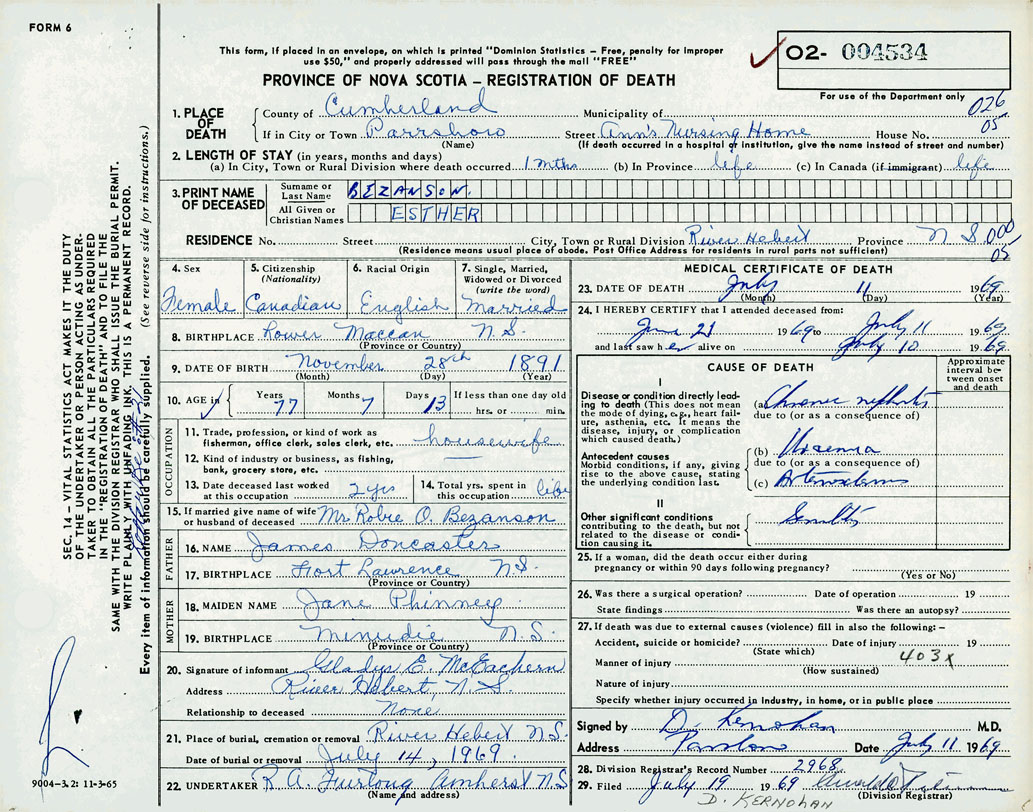 FORM 6
This form, if placed in an envelope, on which is printed "Dominion Statistics – Free, penalty for improper
use $50," and properly addressed will pass through the mail "FREE"
02- 004534
For use of the Department only
PROVINCE OF NOVA SCOTIA – REGISTRATION OF DEATH
026
05
1. PLACE OF DEATH
County of Cumberland Municipality of
If in City or Town Parrsboro Street Ann's Nursing Home House No.
(Name) (If death occurred in a hospital or institution, give the name instead of street and number)
2. LENGTH OF STAY (in years, months and days)
(a) In City, Town or Rural Division where death occurred 1 mths (b) In Province life (c) In Canada (if immigrant) life
3. PRINT NAME OF DECEASED
Surname or Last Name BEZANSON.
All Given or Christian Names ESTHER
RESIDENCE No. Street City, Town or Rural Division River Hebert Province N S 000
05
(Residence means usual place of abode. Post Office Address for residents in rural parts not sufficient)
4. Sex Female
5. Citizenship (Nationality) Canadian
6. Racial Origin English
7. Single, Married, Widowed or Divorced (write the word) Married
8. BIRTHPLACE Lower Maccan N.S.
(Province or Country)
9. DATE OF BIRTH November 28th 1891
(Month) (Day) (Year)
10. AGE in Years 77 Months 7 Days 13 If less than one day old hrs. or min.
OCCUPATION
11. Trade, profession, or kind of work as fisherman, office clerk, sales clerk, etc. housewife
12. Kind of industry or business, as fishing, bank, grocery store, etc. —
13. Date deceased last worked at this occupation 2 yrs
14. Total yrs. spent in this occupation life
15. If married give name of wife or husband of deceased Mr Robie O. Bezanson
FATHER
16. NAME James Doncaster
17. BIRTHPLACE Fort Lawrence N.S.
(Province or Country)
MOTHER
18. MAIDEN NAME Jane Phinney
19. BIRTHPLACE Minudie N.S.
(Province or Country)
20. Signature of informant Gladys E. McEachern
Address River Hebert, N.S.
Relationship to deceased None
21. Place of burial, cremation or removal River Hebert N.S.
Date of burial or removal July 14, 1969
22. UNDERTAKER R. A. Furlong Amherst N.S.
(Name and address)
MEDICAL CERTIFICATE OF DEATH
23. DATE OF DEATH July 11 1969
(Month) (Day) (Year)
24. I HEREBY CERTIFY that I attended deceased from:
June 21 1969 to July 11 1969
and last saw her alive on July 10 1969
CAUSE OF DEATH
Approximate interval between onset and death
I
Disease or condition directly leading to death (This does not mean the mode of dying, e.g., heart failure, asthenia, etc. It means the disease, injury, or complication which caused death.)
(a) Chronic nephritis
due to (or as a consequence of)
Antecedent causes
Morbid conditions, if any, giving rise to the above cause, stating the underlying condition last.
(b) Uraemia
due to (or as a consequence of)
(c)
II
Other significant conditions contributing to the death, but not related to the disease or condition causing it.
Senility
25. If a woman, did the death occur either during pregnancy or within 90 days following pregnancy?
(Yes or No)
26. Was there a surgical operation? Date of operation 19
State findings Was there an autopsy?
27. If death was due to external causes (violence) fill in also the following: –
Accident, suicide or homicide? Date of injury 19
(State which)
403x
Manner of injury
(How sustained)
Nature of injury
Specify whether injury occurred in Industry, in home, or in public place
Signed by D. Kernohan M.D.
Address Date July 11 1969
28. Division Registrar's Record Number 2968
29. Filed July 19 1969
(Division Registrar)
D. KERNOHAN
SEC. 14 – VITAL STATISTICS ACT MAKES IT THE DUTY
OF THE UNDERTAKER OR PERSON ACTING AS UNDER-
TAKER TO OBTAIN ALL THE PARTICULARS REQUIRED
IN THE "REGISTRATION OF DEATH" AND TO FILE THE
SAME WITH THE DIVISION REGISTRAR WHO SHALL ISSUE THE BURIAL PERMIT.
WRITE PLAINLY WITH UNFADING INK. THIS IS A PERMANENT RECORD.
Every item of information should be carefully supplied. (See reverse side for instructions.)
9004–3.2: 11-3-65